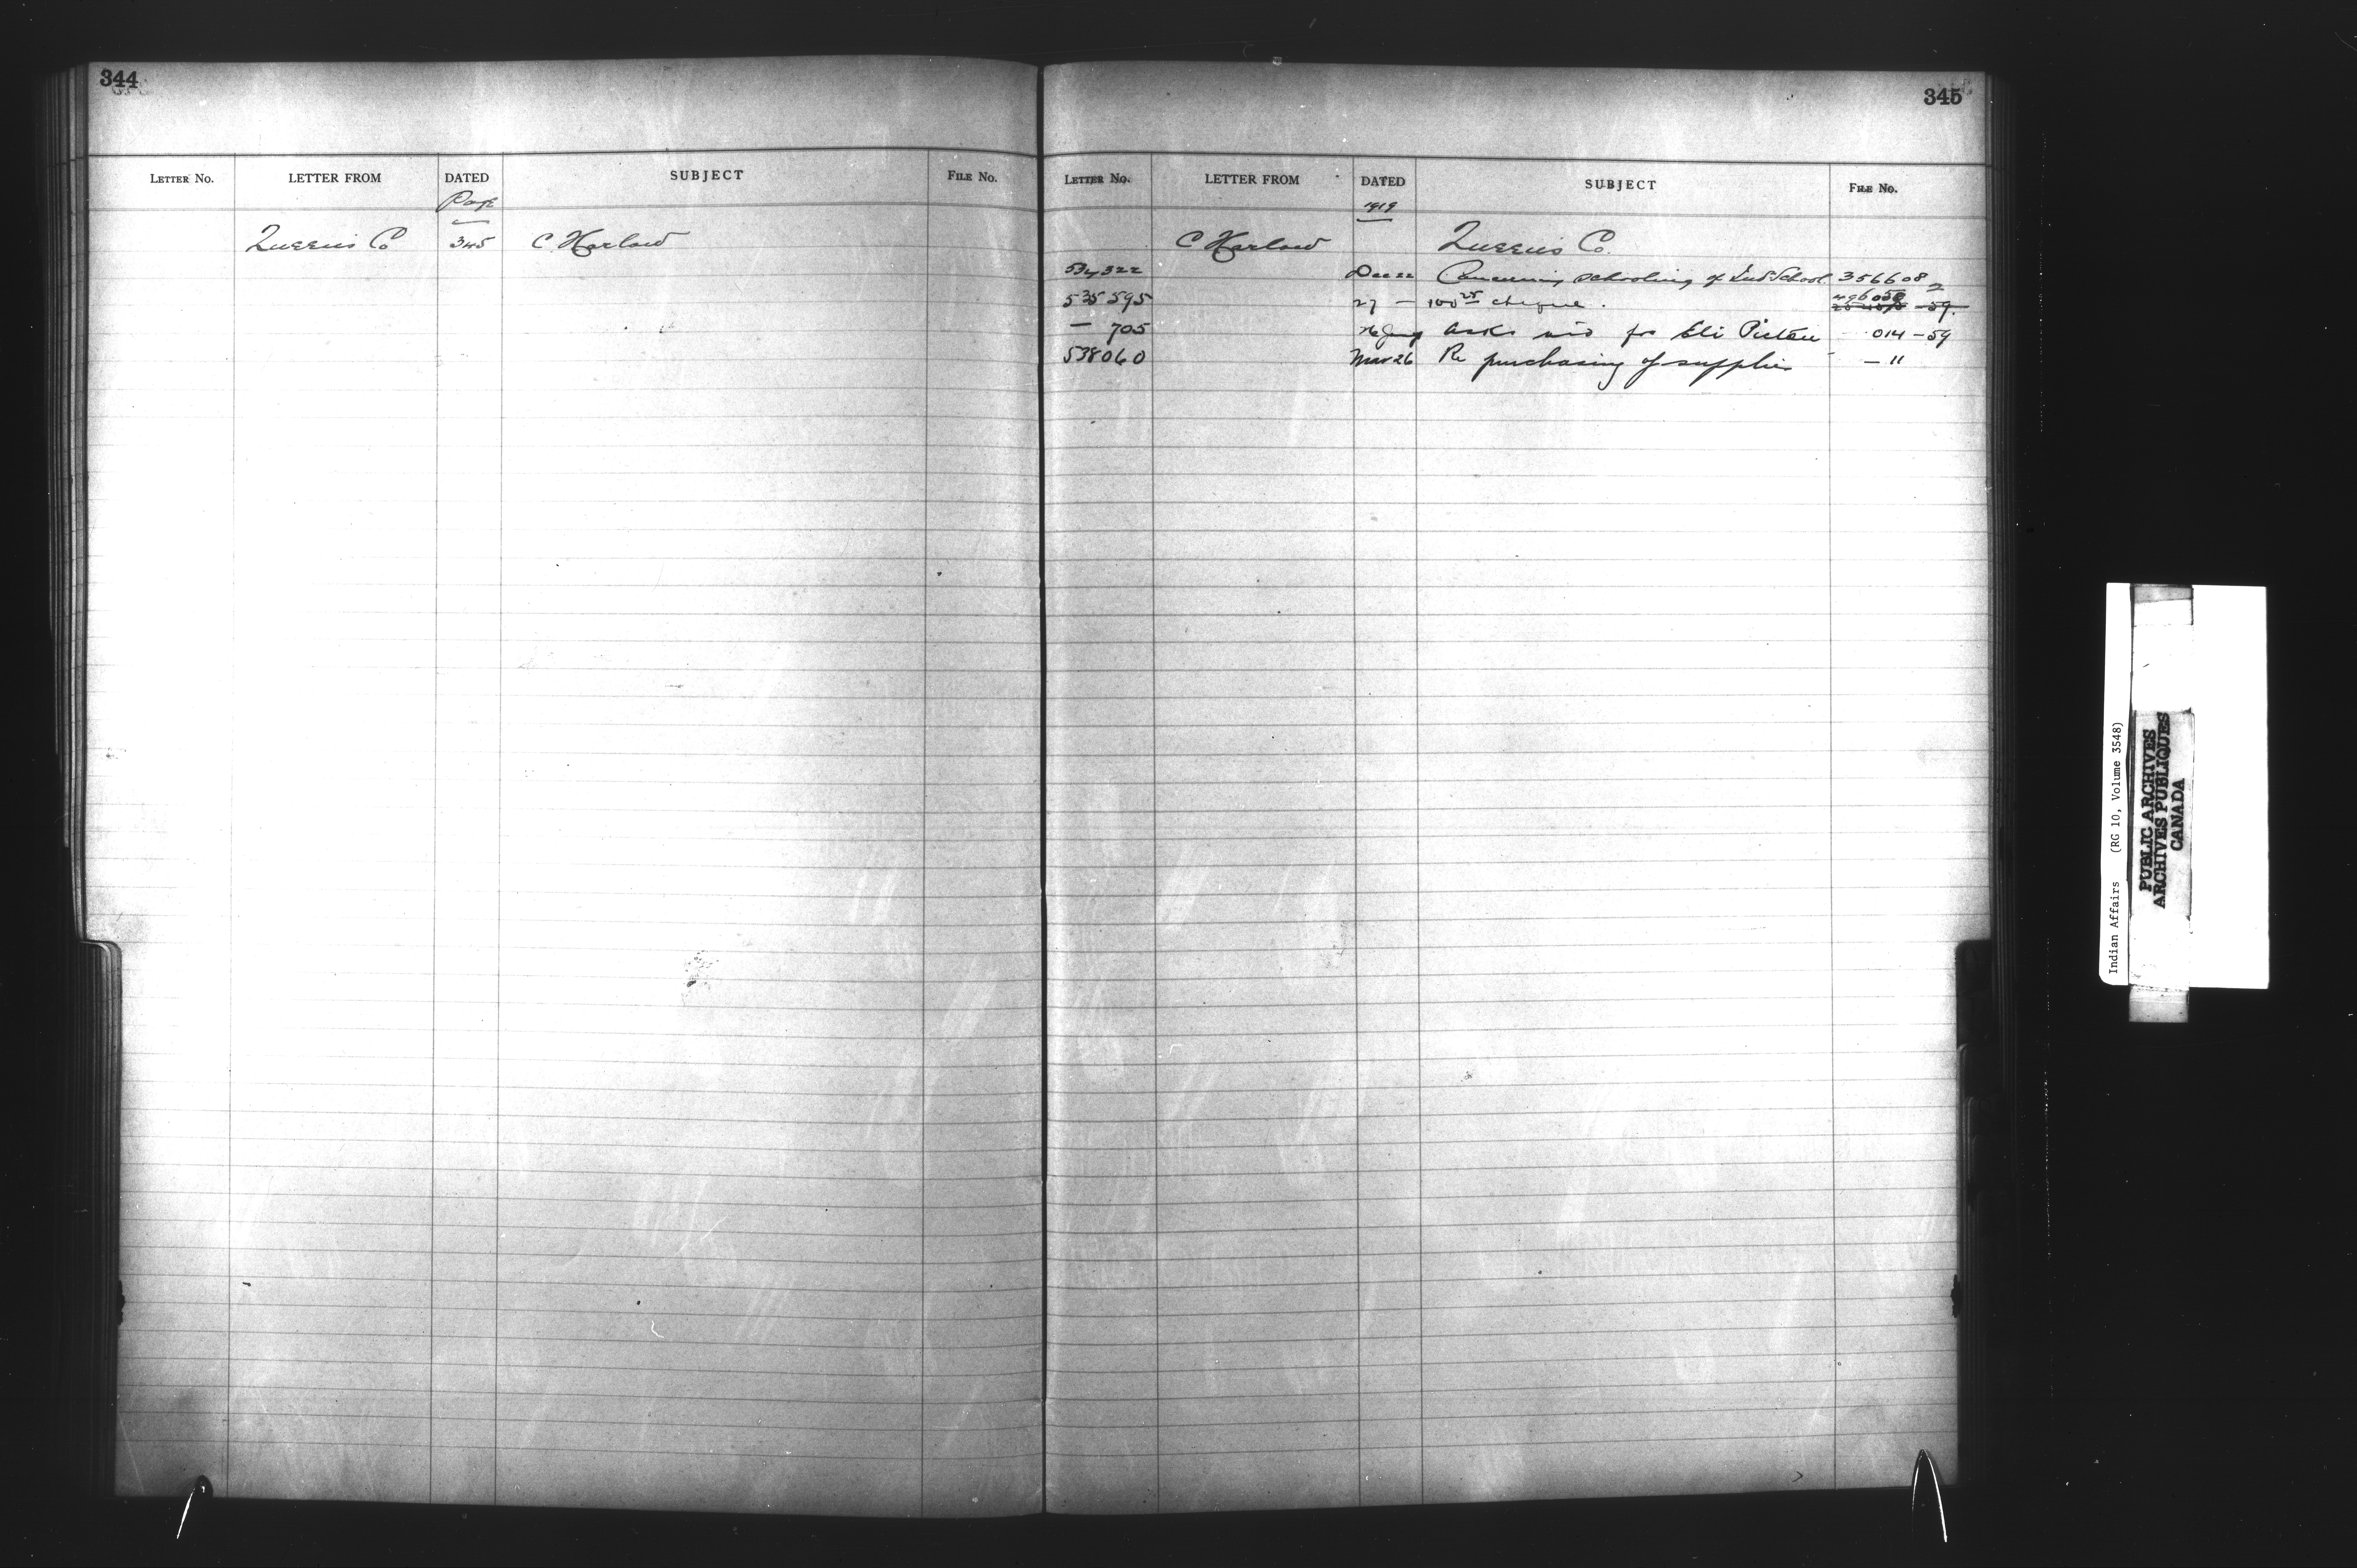 344
LETTER NO. LETTER FROM DATED SUBJECT FILE NO.
Page
Queens Co 345 C Harlow
345
LETTER NO. LETTER FROM DATED SUBJECT FILE NO.
1919
C Harlow Queens Co.
534322 Dec 22 Concerning schooling of Ind School 356608 2
535595 27 — 100 25 cheque. 496050 -59.
— 705 asks aid for Eli Pictou 014 -59
538060 Mar 26 Re purchasing of supplies — 11
Indian Affairs (RG 10, Volume 3548)
PUBLIC ARCHIVES
ARCHIVES PUBLIQUES
CANADA